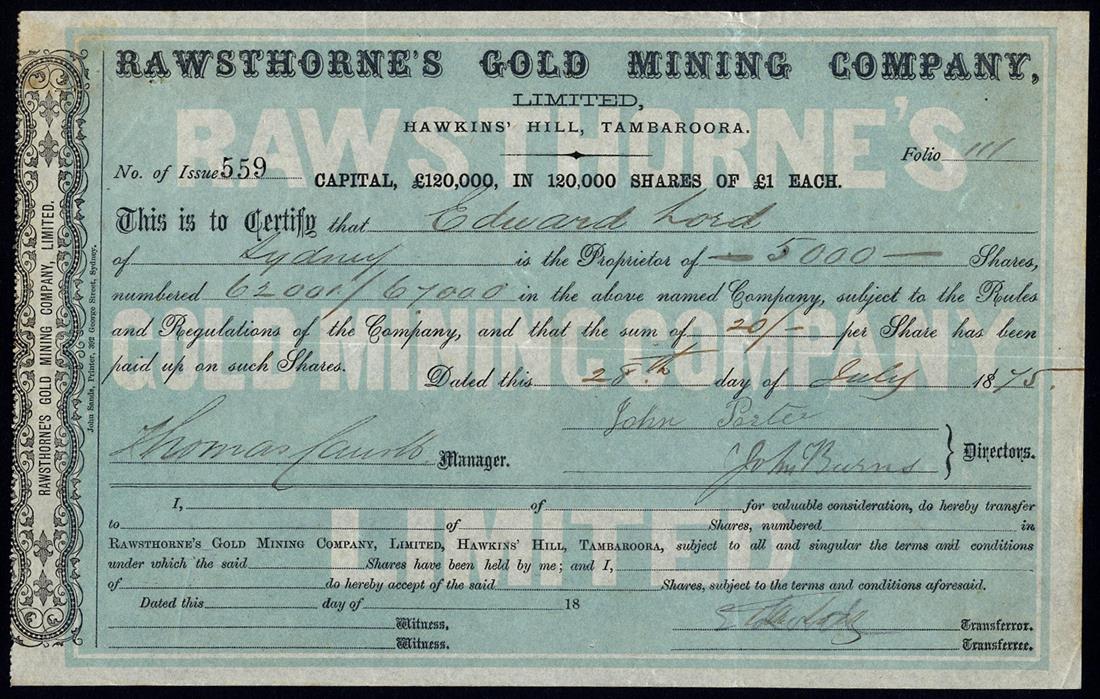 RAWSTHORNE'S GOLD MINING COMPANY,
LIMITED,
HAWKINS' HILL, TAMBAROORA.
Folio 111
No. of Issue 559
CAPITAL, £120,000, IN 120,000 SHARES OF £1 EACH.
This is to Certify that Edward Lord
of Sydney is the Proprietor of — 5000 — Shares,
numbered 62001/67000 in the above named Company, subject to the Rules
and Regulations of the Company, and that the sum of 20/- per Share has been
paid up on such Shares.
Dated this 28th day of July 1875.
John Porter
Thomas Manager.
John Burns Directors.
I, of for valuable consideration, do hereby transfer
to of Shares, numbered in
RAWSTHORNE'S GOLD MINING COMPANY, LIMITED, HAWKINS' HILL, TAMBAROORA, subject to all and singular the terms and conditions
under which the said Shares have been held by me; and I,
of do hereby accept of the said Shares, subject to the terms and conditions aforesaid.
Dated this day of 18
Witness. Transferror.
Witness. Transferree.
RAWSTHORNE'S GOLD MINING COMPANY, LIMITED.
John Sands, Printer, 392 George Street, Sydney.
RAWSTHORNE'S
GOLD MINING COMPANY
LIMITED